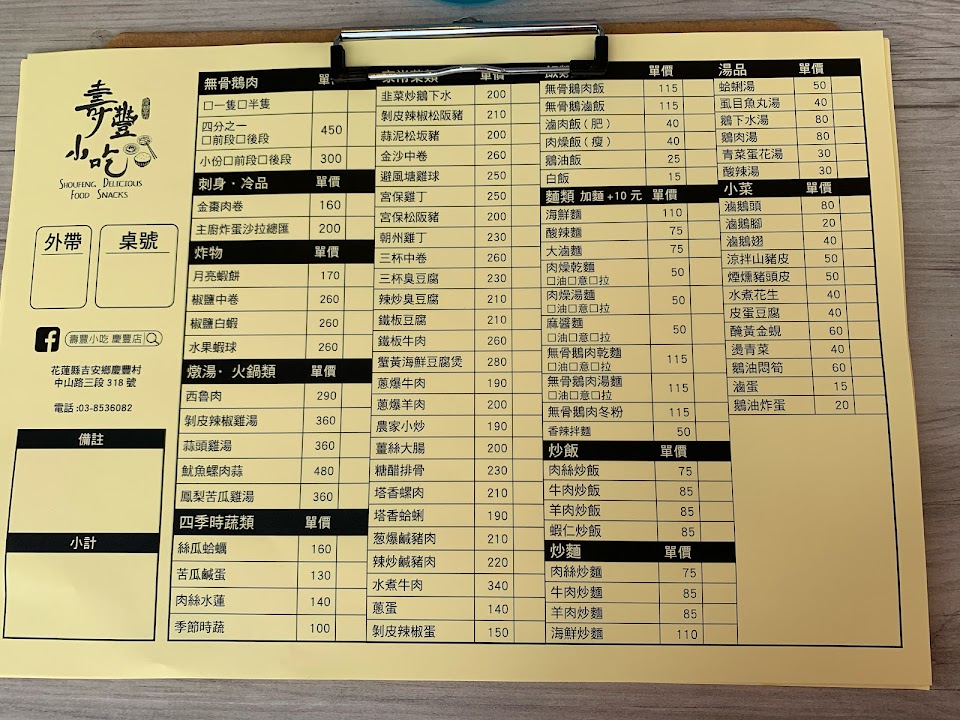 壽豐
小吃
SHOUFENG DELICIOUS
FOOD SNACKS
外帶 桌號
壽豐小吃 慶豐店
花蓮縣吉安鄉慶豐村
中山路三段 318 號
電話 :03-8536082
備註
小計
無骨鵝肉
□一隻□半隻
四分之一
□前段□後段 450
小份□前段□後段 300
刺身·冷品 單價
金棗肉卷 160
主廚炸蛋沙拉總匯 200
炸物 單價
月亮蝦餅 170
椒鹽中卷 260
椒鹽白蝦 260
水果蝦球 260
燉湯·火鍋類 單價
西魯肉 290
剝皮辣椒雞湯 360
蒜頭雞湯 360
魷魚螺肉蒜 480
鳳梨苦瓜雞湯 360
四季時蔬類 單價
絲瓜蛤蠣 160
苦瓜鹹蛋 130
肉絲水蓮 140
季節時蔬 100
家常菜類 單價
韭菜炒鵝下水 200
剝皮辣椒松阪豬 210
蒜泥松坂豬 200
金沙中卷 260
避風塘雞球 250
宮保雞丁 250
宮保松阪豬 200
朝州雞丁 230
三杯中卷 260
三杯臭豆腐 230
辣炒臭豆腐 210
鐵板豆腐 210
鐵板牛肉 260
蟹黃海鮮豆腐煲 280
蔥爆牛肉 190
蔥爆羊肉 200
農家小炒 190
薑絲大腸 200
糖醋排骨 230
塔香螺肉 210
塔香蛤蜊 190
蔥爆鹹豬肉 210
辣炒鹹豬肉 220
水煮牛肉 340
蔥蛋 140
剝皮辣椒蛋 150
飯類 單價
無骨鵝肉飯 115
無骨鵝滷飯 115
滷肉飯 ( 肥 ) 40
肉燥飯 ( 瘦 ) 40
鵝油飯 25
白飯 15
麵類 加麵 +10 元 單價
海鮮麵 110
酸辣麵 75
大滷麵 75
肉燥乾麵
□油□意□拉 50
肉燥湯麵
□油□意□拉 50
麻醬麵
□油□意□拉 50
無骨鵝肉乾麵
□油□意□拉 115
無骨鵝肉湯麵
□油□意□拉 115
無骨鵝肉冬粉 115
香辣拌麵 50
炒飯 單價
肉絲炒飯 75
牛肉炒飯 85
羊肉炒飯 85
蝦仁炒飯 85
炒麵 單價
肉絲炒麵 75
牛肉炒麵 85
羊肉炒麵 85
海鮮炒麵 110
湯品 單價
蛤蜊湯 50
虱目魚丸湯 40
鵝下水湯 80
鵝肉湯 80
青菜蛋花湯 30
酸辣湯 30
小菜 單價
滷鵝頭 80
滷鵝腳 20
滷鵝翅 40
涼拌山豬皮 50
煙燻豬頭皮 50
水煮花生 40
皮蛋豆腐 40
醃黃金蜆 60
燙青菜 40
鵝油悶筍 60
滷蛋 15
鵝油炸蛋 20